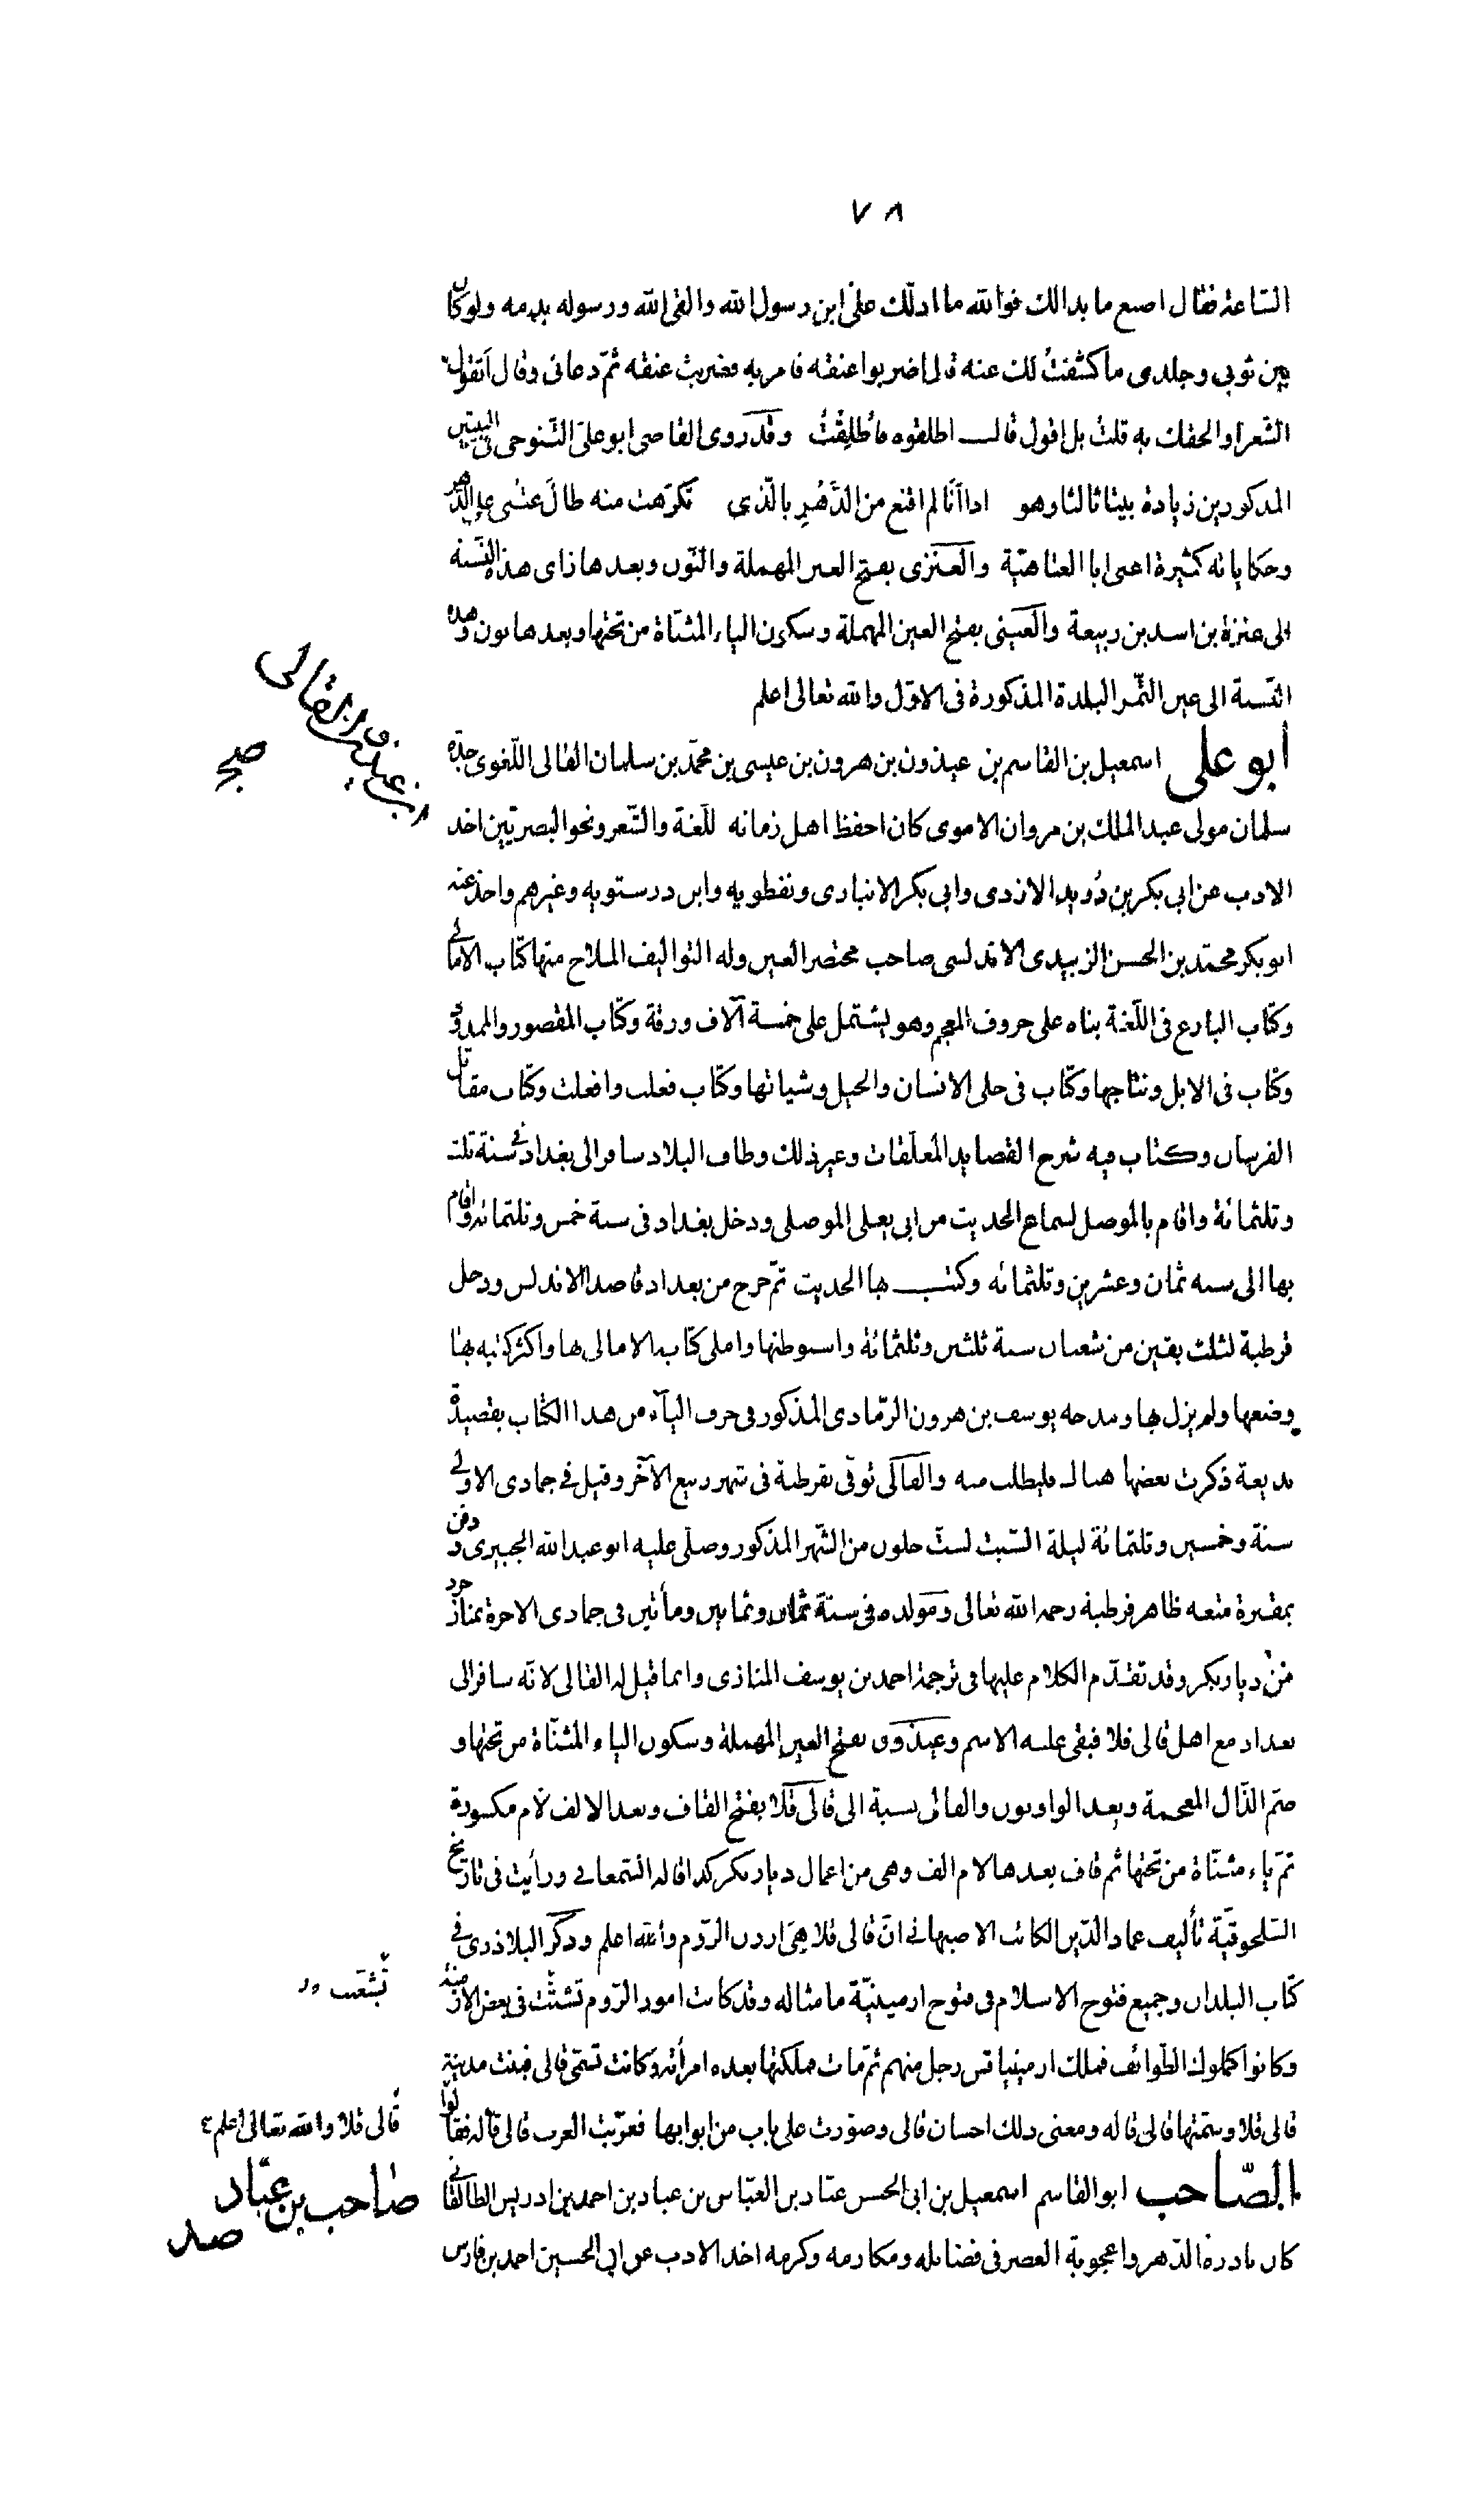 ٧٨
الساعة فقال اصنع ما بدا لك فوالله ما ادلّك على ابن رسول الله والقى الله ورسوله بدمه ولو كان
بين ثوبى وجلدى ما كشفتُ لك عنه قال اضربوا عنقه فامر به فضربت عنقه ثمّ دعانى وقال أتقول
الشعر او الحقك به قلتُ بل اقول قال اطلقوه فأُطلِقْتُ وقد روى القاضى ابو علىّ التنوخى فى البيتين
المذكورين زيادة بيتا ثالثا وهو اذا أنا لم اقنع من الدَّهْرِ بالّذى تكرّهت منه طالَ عتْبى على الدّهر
وحكاياته كثيرة اعنى ابا العتاهيّة والعنزى بفتح العين المهملة والنّون وبعدها زاى هذه النّسبة
الى عنزة بن اسد بن ربيعة والعَينى بفتح العين المهملة وسكون الياء المثنّاة من تحتها وبعدها نون وهذه
النّسبة الى عين التّمر البلدة المذكورة فى الاوّل والله تعالى اعلم
أبو على اسمعيل بن القاسم بن عيذون بن هرون بن عيسى بن محمّد بن سلمان القالى اللّغوى جدّه
سلمان مولى عبد الملك بن مروان الاموى كان احفظ اهل زمانه للّغة والشّعر ونحو البصريّين اخذ
الادب عن ابى بكر بن دُريد الازدى وابى بكر الانبارى ونفطويه وابن درستويه وغيرهم واخذ عنه
ابو بكر محمّد بن الحسن الزبيدى الاندلسى صاحب مختصر العين وله التواليف الملاح منها كتاب الامالى
وكتاب البارع فى اللّغة بناه على حروف المعجم وهو يشتمل على خمسة آلاف ورقة وكتاب المقصور والممدود
وكتاب فى الابل ونتاجها وكتاب فى حلى الانسان والخيل وشياتها وكتاب فعلت وافعلت وكتاب مقاتل
الفرسان وكتاب فيه شرح القصايد المعلّقات وغير ذلك وطاف البلاد سافر الى بغداد فى سنة ثلث
وثلثمائة واقام بالموصل لسماع الحديث من ابى يعلى الموصلى ودخل بغداد فى سنة خمس وثلثمائة واقام
بها الى سنه ثمان وعشرين وثلثمائه وكتب بها الحديث ثمّ خرج من بغداد قاصدا الاندلس ودخل
قرطبة لثلث بقين من شعبان سنة ثلثين وثلثمائة واستوطنها واملى كتابه الامالى بها واكثر كتبه بها
وضعها ولم يزل بها ومدحه يوسف بن هرون الرّمادى المذكور فى حرف اليآء من هذا الكتاب بقصيدة
بديعة ذكرت بعضها هناك فليطلب منه والقالى توفّى بقرطبة فى شهر ربيع الآخر وقيل فى جمادى الاولى
سنة وخمسين وثلثمائة ليلة السّبت لستّ خلون من الشّهر المذكور وصلّى عليه ابو عبد الله الجبيرى ودفن
بمقبرة متعه ظاهر قرطبة رحمه الله تعالى ومولده فى سنة ثمان وثمانين ومأتين فى جمادى الاخرة بمنازجرد
من ديار بكر وقد تقدّم الكلام عليها فى ترجمة احمد بن يوسف المنازى وانما قيل له القالى لانّه سافر الى
بغداد مع اهل قالى قلا فبقى عليه الاسم وعيذون بفتح العين المهملة وسكون الياء المثنّاة من تحتها و
ضمّ الذّال المعجمة وبعد الواو نون والقالى نسبة الى قالى قلا بفتح القاف وبعد الالف لام مكسورة
ثمّ ياء مثنّاة من تحتها ثم قاف بعدها لام الف وهى من اعمال ديار بكر كذا قاله السّمعانى ورأيت فى تاريخ
السّلجوقيّة تأليف عماد الدّين الكاتب الاصبهانى انّ قالى قلا هِىَ ارزن الرّوم والله اعلم وذكر البلاذرى فى
كتاب البلدان وجميع فتوح الاسلام فى فتوح ارمينيّة ما مثاله وقد كانت امور الرّوم تشتّتت فى بعض الازمنة
وكانوا كملوك الطّوائف فملك ارمينياقس رجل منهم ثمّ مات فملكتها بعده امرأته وكانت تسمّى قالى فبنت مدينة
قالى قلا وسمّتها قالى قاله ومعنى ذلك احسان قالى وصوّرت على باب من ابوابها فعرّبت العرب قالى قاله فقالوا
الصّاحب ابو القاسم اسمعيل بن ابى الحسن عبّاد بن العبّاس بن عباد بن احمد بن ادريس الطالقانى
كان نادرة الدّهر واعجوبة العصر فى فضائله ومكارمه وكرمه اخذ الادب عن ابى الحسين احمد بن فارس
القالى
صح
تشعّبت
قالى قلا والله تعالى اعلم
صاحب بن عبّاد